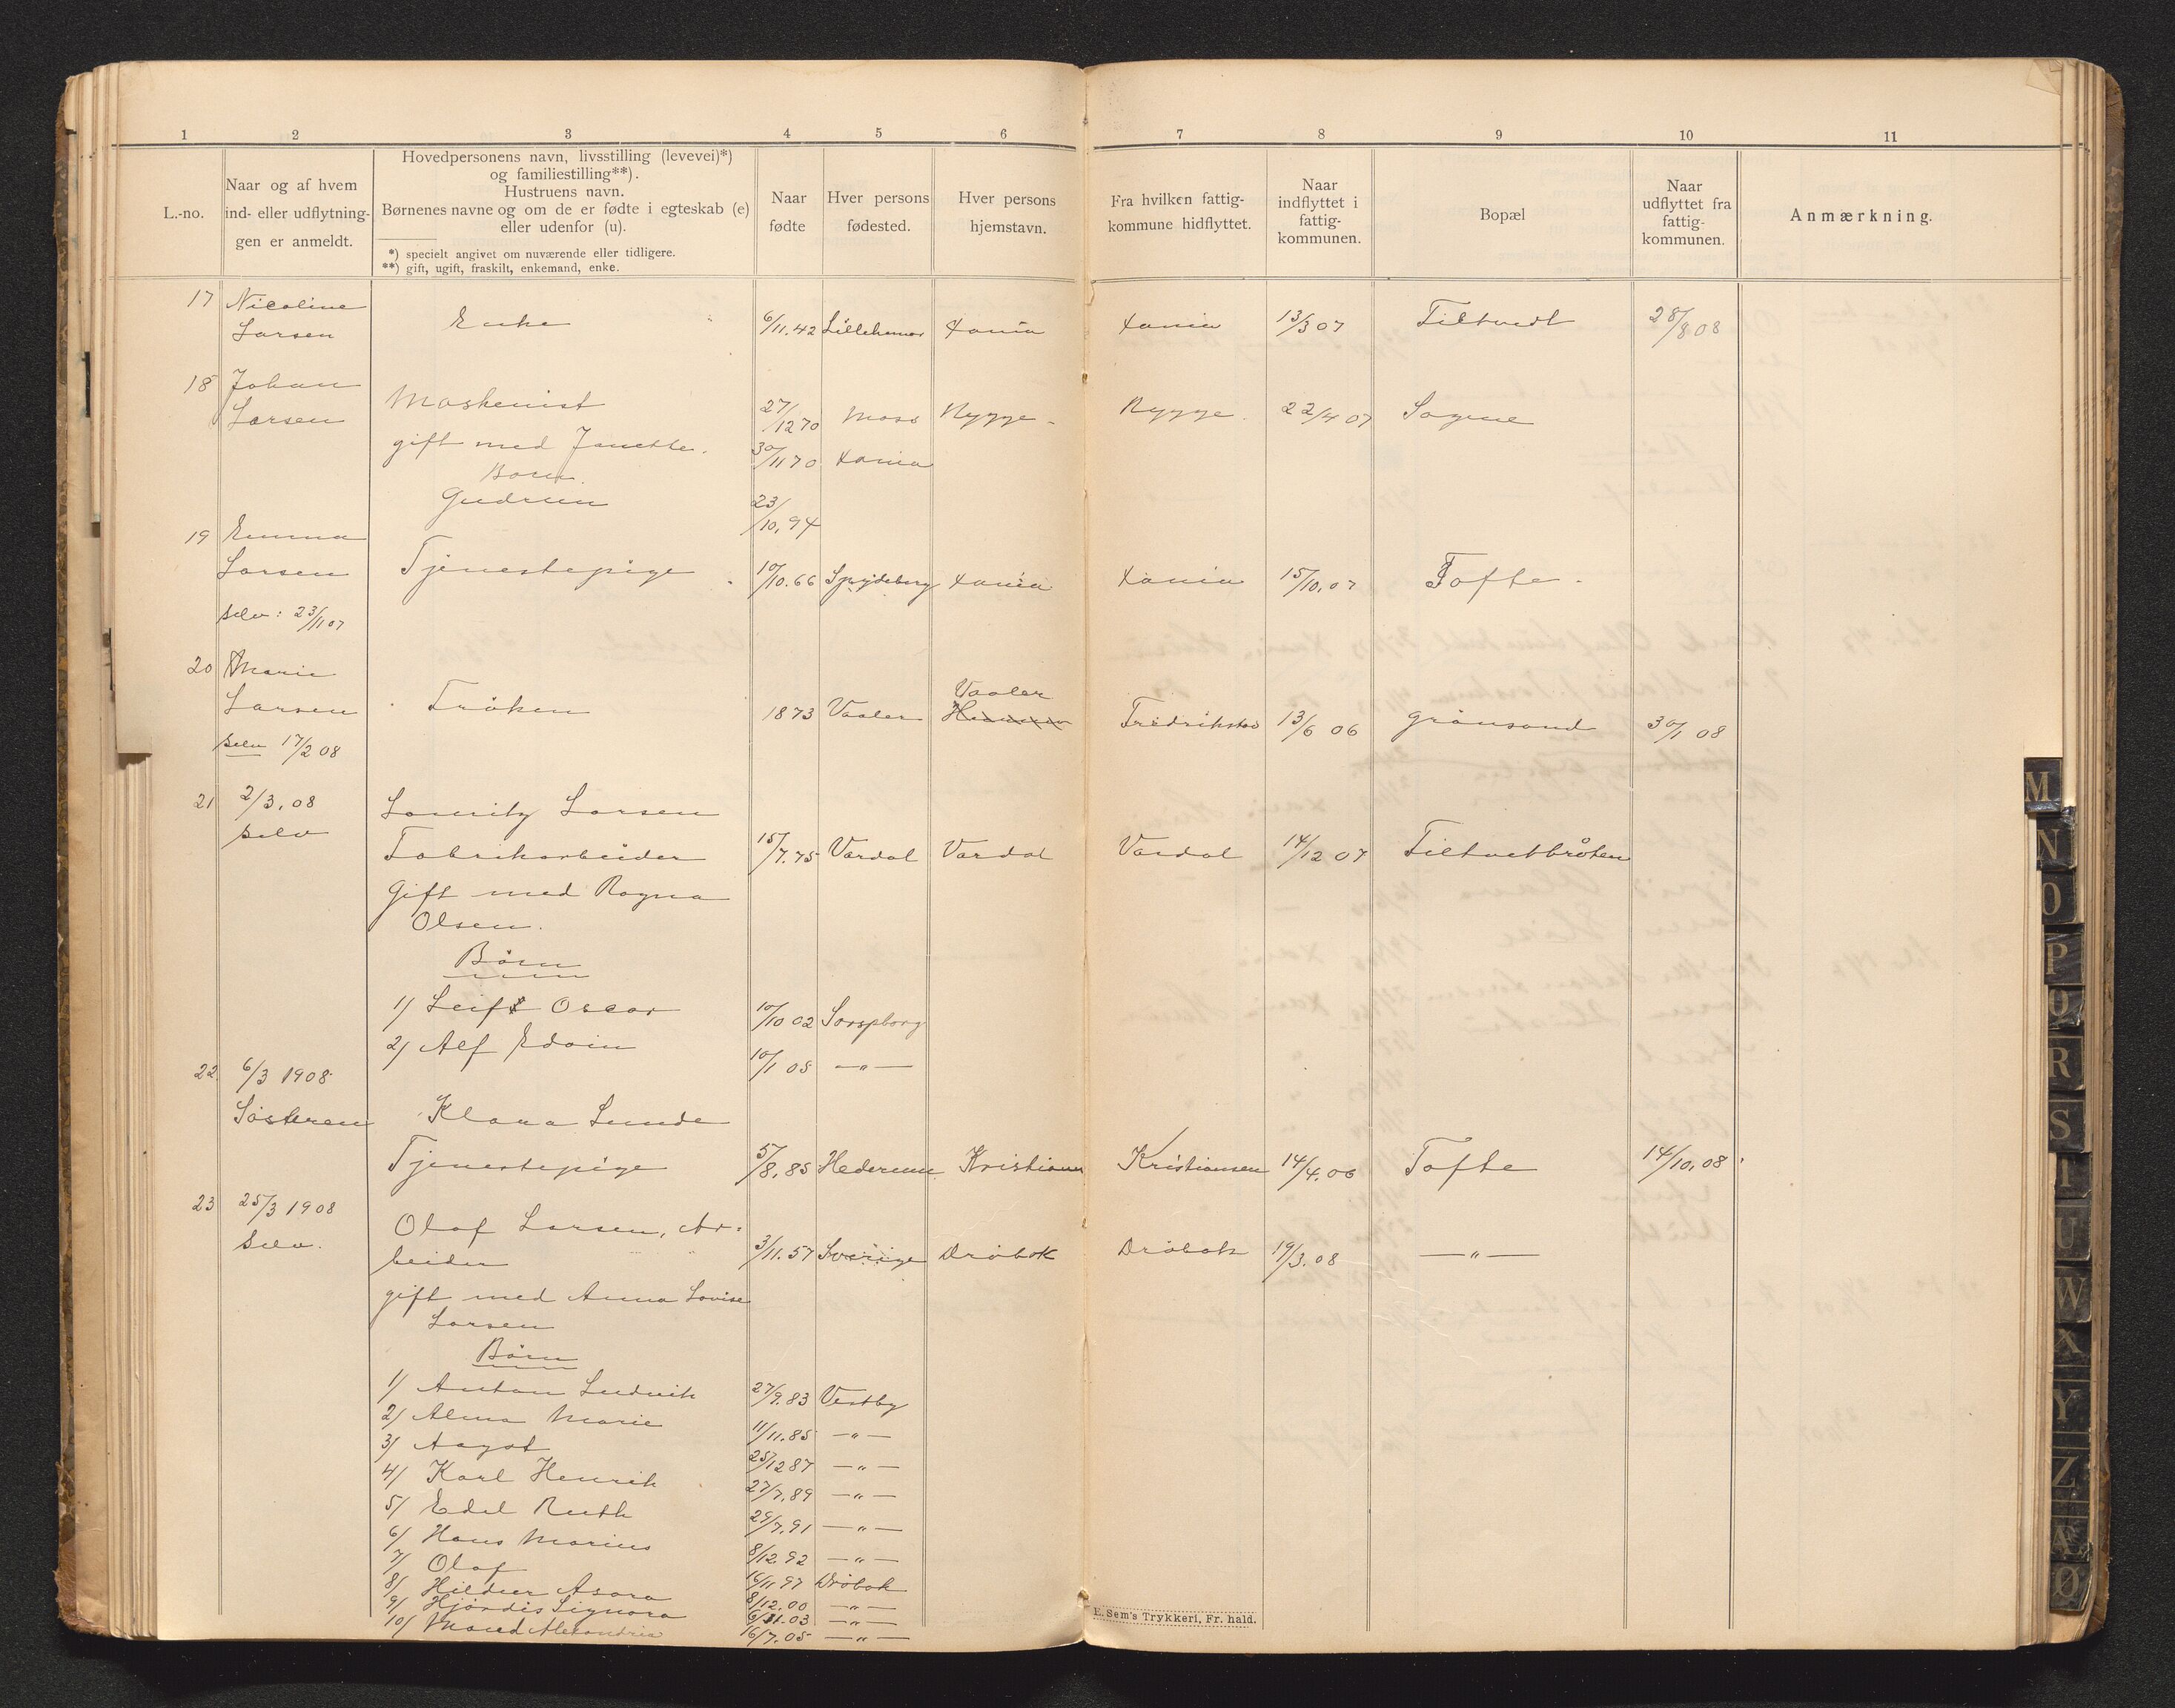 1 2 3 4 5 6 7 8 9 10 11
L.-no.
Naar og af hvem
ind- eller udflytnin-
gen er anmeldt.
Hovedpersonens navn, livsstilling (levevei)*)
og familiestilling**).
Hustruens navn.
Børnenes navne og om de er fødte i egteskab (e)
eller udenfor (u).
*) specielt angivet om nuværende eller tidligere.
**) gift, ugift, fraskilt, enkemand, enke.
Naar
fødte
Hver persons
fødested.
Hver persons
hjemstavn.
Fra hvilken fattig-
kommune hidflyttet.
Naar
indflyttet i
fattig-
kommunen.
Bopæl
Naar
udflyttet fra
fattig-
kommunen.
Anmærkning.
17 Nicoline
Larsen Enke 6/11.42 Lillehammer Xania Xania 13/3 07 Tiltvedt 28/8 08
18 Johan
Larsen Maskenist 27/12 70 Moss Rygge Rygge 22/4 07 Sagene
gift med Janette. 30/11 70 Xania
Born.
Gudrun 23/10. 94
19 Emma
Larsen Tjenestepige 10/10.66 Spydeberg Xania Xania 15/10.07 Tofte
selv: 23/11 07
20 Marie
Vaaler
Larsen Fröken 1873 Vaaler Fredrikstad 13/6 06 Grönsand 30/1 08
selv 17/2 08
21 2/3.08 Lauritz Larsen
selv
Fabrikarbeider 15/7.75 Vardal Vardal Vardal 14/12 07 Tiltvetbråten
Gift med Ragna
Olsen.
Börn
1/ Leif Oscar 10/10 02 Sarpsborg
2/ Alf Edvin 10/1 05 —"—
22 6/3 1908
Søsteren Klara Lunde
Tjenestepige 5/8.85 Hederum Kristiansen 14/4.06 Tofte 14/10.08
23 25/3 1908
Selv. Olaf Larsen, Ar-
beider 3/11.57 Sverige Dröbak Dröbak 19/3.08 —"—
gift med Anna Lovise
Larsen
Börn
1/ Anton Ludvik 27/9.83 Vestby
2/ Alma Marie 11/11.85 —"—
3/ Aagot 25/12 87 —"—
4/ Karl Henrik 27/7.89 —"—
5/ Edel Ruth 29/7.91 —"—
6/ Hans Marius 8/12.92 —"—
7/ Olaf 16/11 97 Dröbak
8/ Hildur Asora 8/12.00 —"—
9/ Hjördis Signora 6/11.03 —"—
10/ Maud Alexandria 16/7.05 —"—
E. Sem's Trykkeri, Fr. hald.
M
N
O
P
Q
R
S
T
U
W
X
Y
Z
Æ
Ø